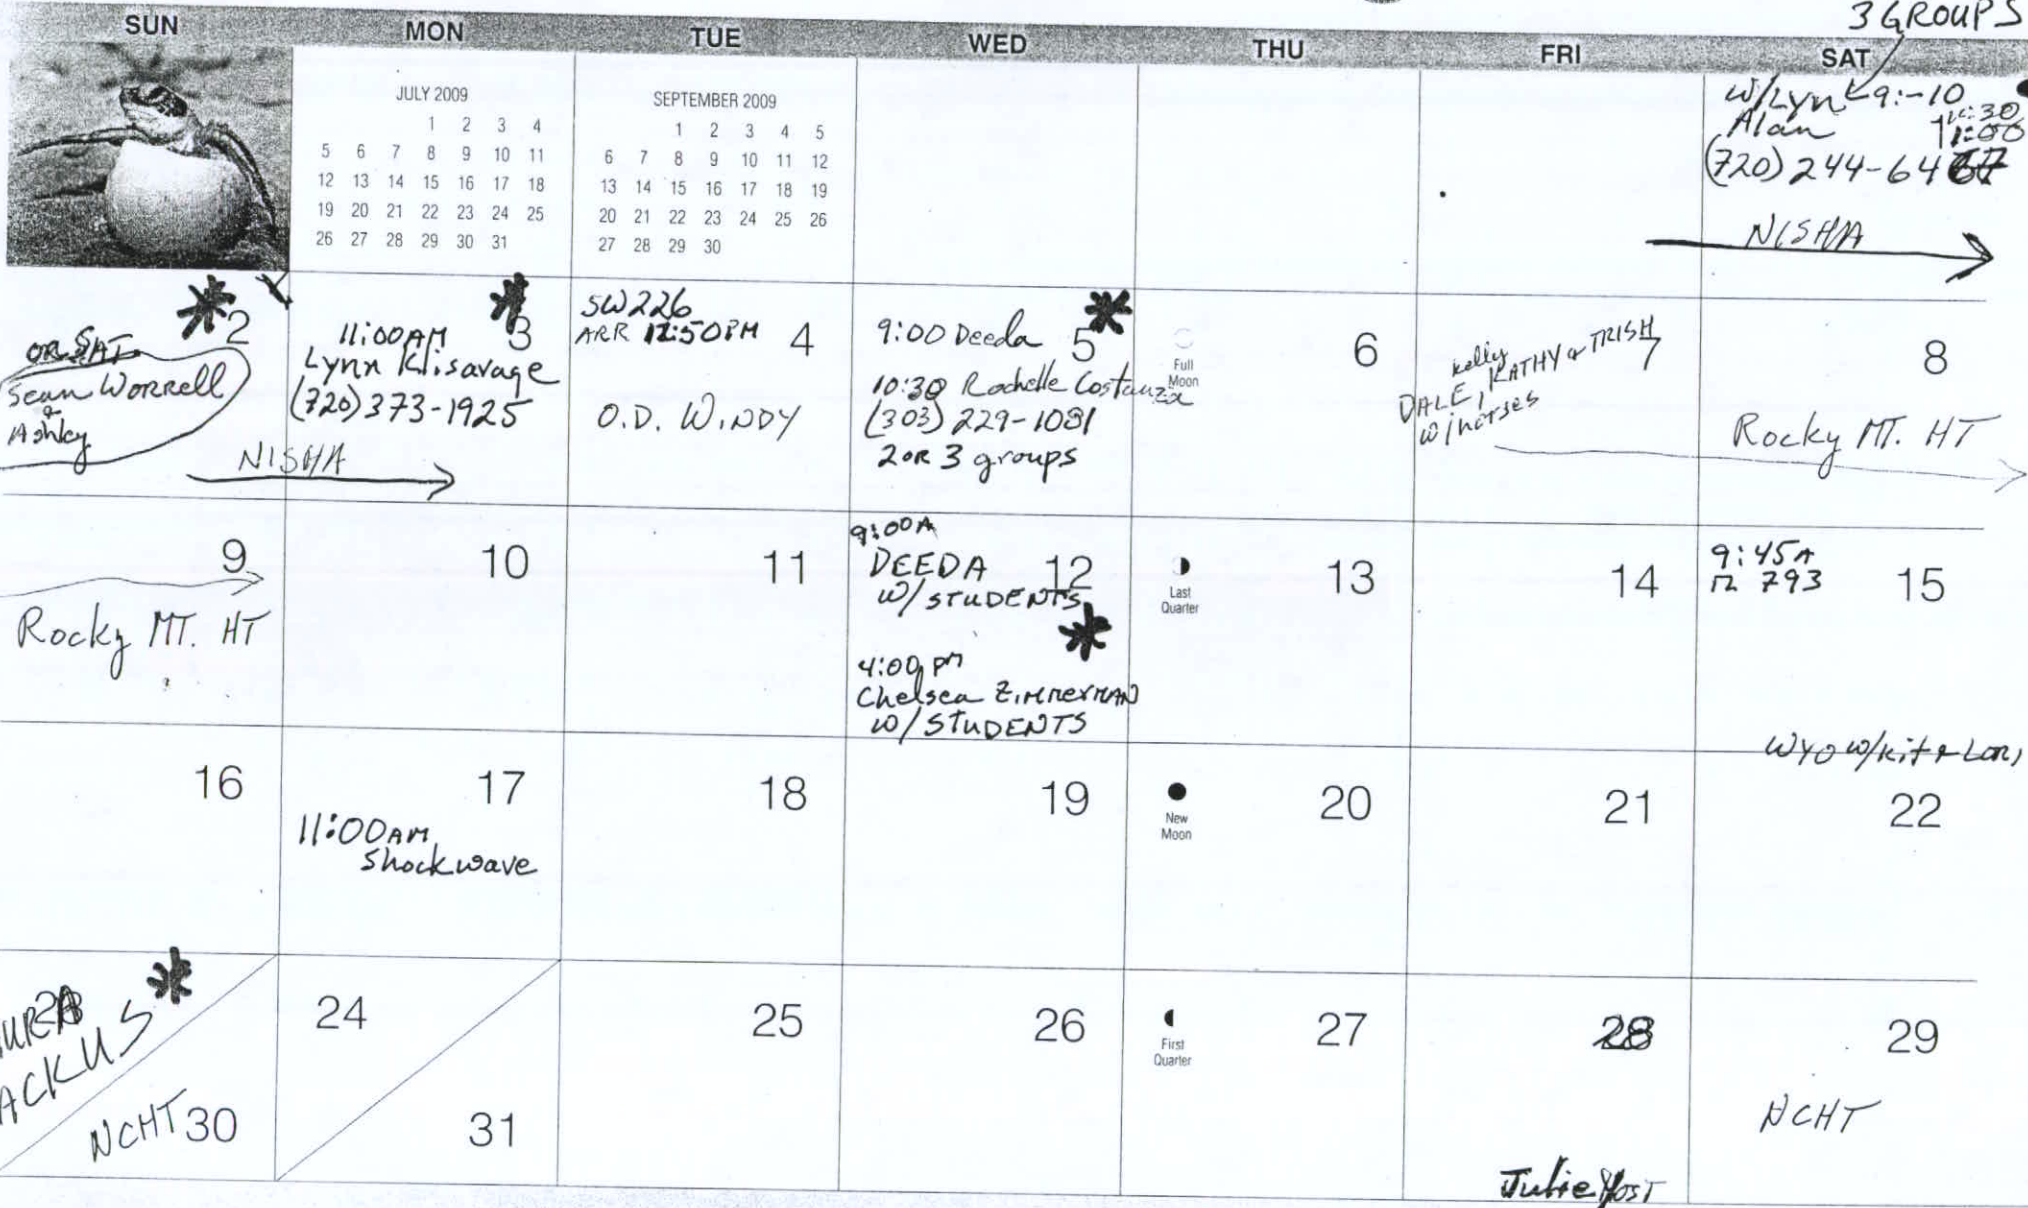 3 GROUPS
SUN MON TUE WED THU FRI SAT
JULY 2009
1 2 3 4
5 6 7 8 9 10 11
12 13 14 15 16 17 18
19 20 21 22 23 24 25
26 27 28 29 30 31
SEPTEMBER 2009
1 2 3 4 5
6 7 8 9 10 11 12
13 14 15 16 17 18 19
20 21 22 23 24 25 26
27 28 29 30
W/Lyn 9:-10
Alan 11:00
(720) 244-64
NISHA
2
OR SAT
Sean Worrell
&
Ashley
NISHA
3
11:00AM
Lynn Klisavage
(720) 373-1925
SW226
ARR 12:50PM 4
O.D. WINDY
9:00 Deeda 5
10:30 Rochelle Costanza
(303) 229-1081
2 OR 3 groups
Full
Moon
6
7
Kelly
DALE, KATHY & TRISH
w/horses
8
Rocky MT. HT
9
Rocky MT. HT
10
11
9:00A
DEEDA 12
W/ STUDENTS
4:00 pm
Chelsea ZIMMERMAN
W/ STUDENTS
Last
Quarter
13
14
9:45A
793
15
16
17
11:00AM
Shockwave
18
19
New
Moon
20
21
WYO w/Kit & Lori
22
23
24
25
26
First
Quarter
27
28
Julie Yost
29
NCHT
NCHT 30
31